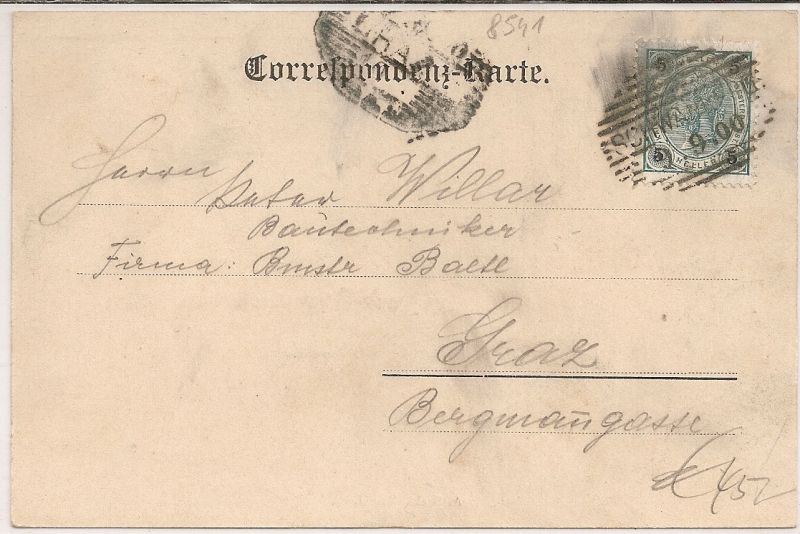 8541
Correspondenz-Karte.
5 5
9 00
5 5
Herrn
Peter Willar
Bautechniker
Firma: Bmstr Baltl
Graz
Bergmanngasse